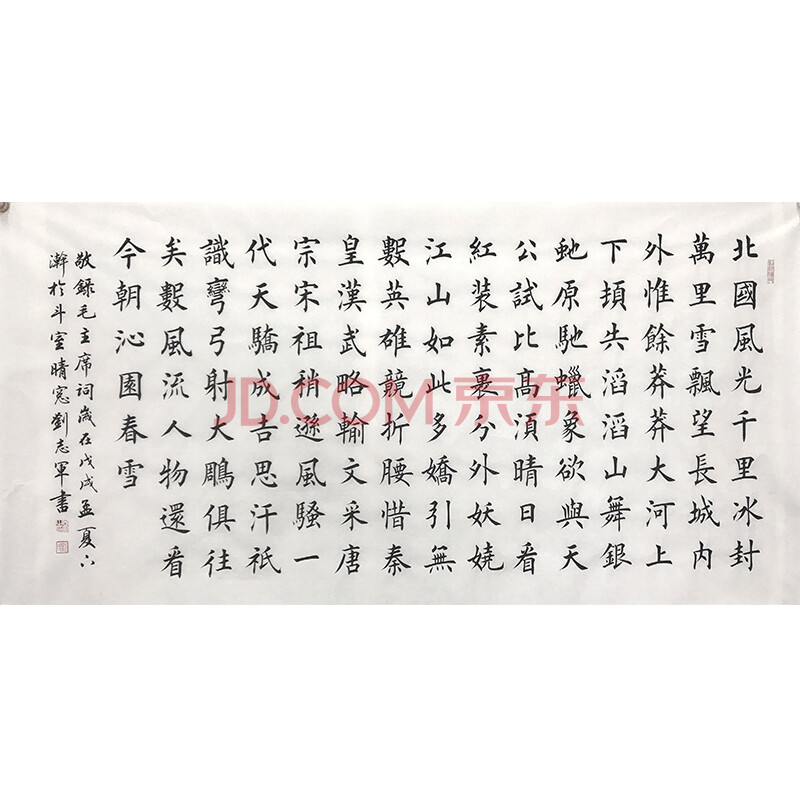 北國風光千里冰封
萬里雪飄望長城內
外惟餘莽莽大河上
下頓失滔滔山舞銀
虵原馳蠟象欲與天
公試比高須晴日看
紅裝素裹分外妖嬈
江山如此多嬌引無
數英雄競折腰惜秦
皇漢武略輸文采唐
宗宋祖稍遜風騷一
代天驕成吉思汗祇
識彎弓射大鵰俱往
矣數風流人物還看
今朝沁園春雪
敬録毛主席詞歲在戊戌孟夏六
澣於斗室晴窓劉志軍書
JD.COM 京东